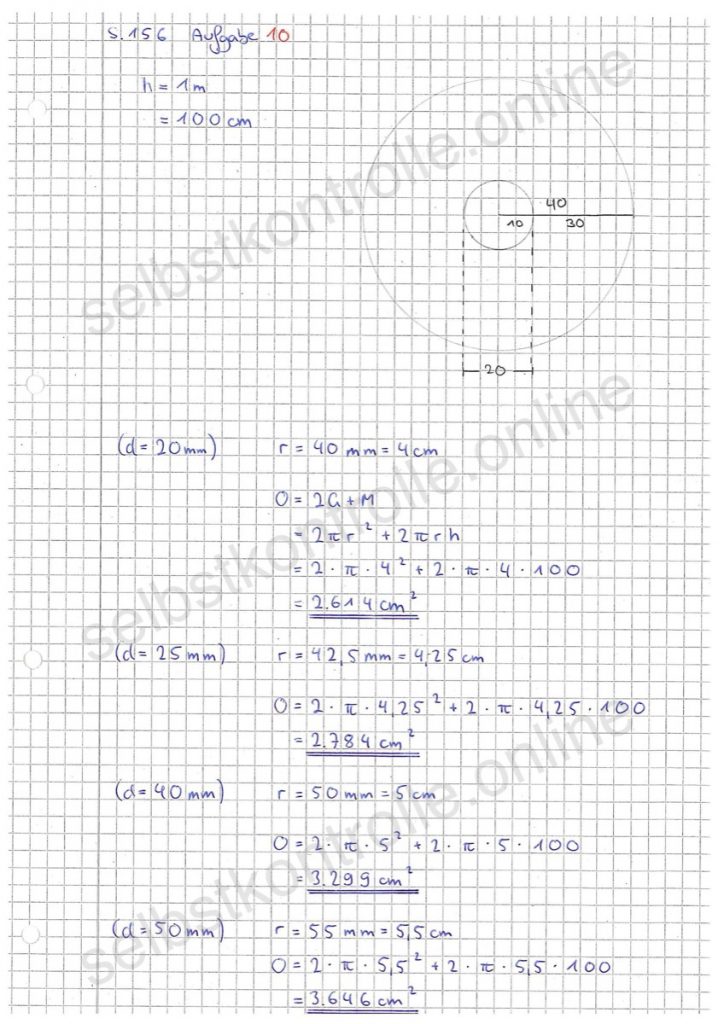 S.156 Aufgabe 10
h = 1m
= 100 cm
40
10 30
20
(d = 20 mm) r = 40 mm = 4 cm
O = 2G + M
= 2πr² + 2πrh
= 2 · π · 4² + 2 · π · 4 · 100
= 2.614 cm²
(d = 25 mm) r = 42,5 mm = 4,25 cm
O = 2 · π · 4,25² + 2 · π · 4,25 · 100
= 2.784 cm²
(d = 40 mm) r = 50 mm = 5 cm
O = 2 · π · 5² + 2 · π · 5 · 100
= 3.299 cm²
(d = 50 mm) r = 55 mm = 5,5 cm
O = 2 · π · 5,5² + 2 · π · 5,5 · 100
= 3.646 cm²
selbstkontrolle.online
selbstkontrolle.online
selbstkontrolle.online